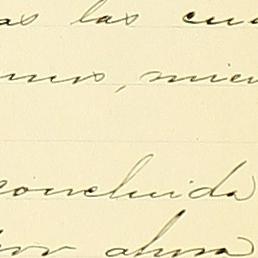 as las cu
mos, mien
concluida
por ahora